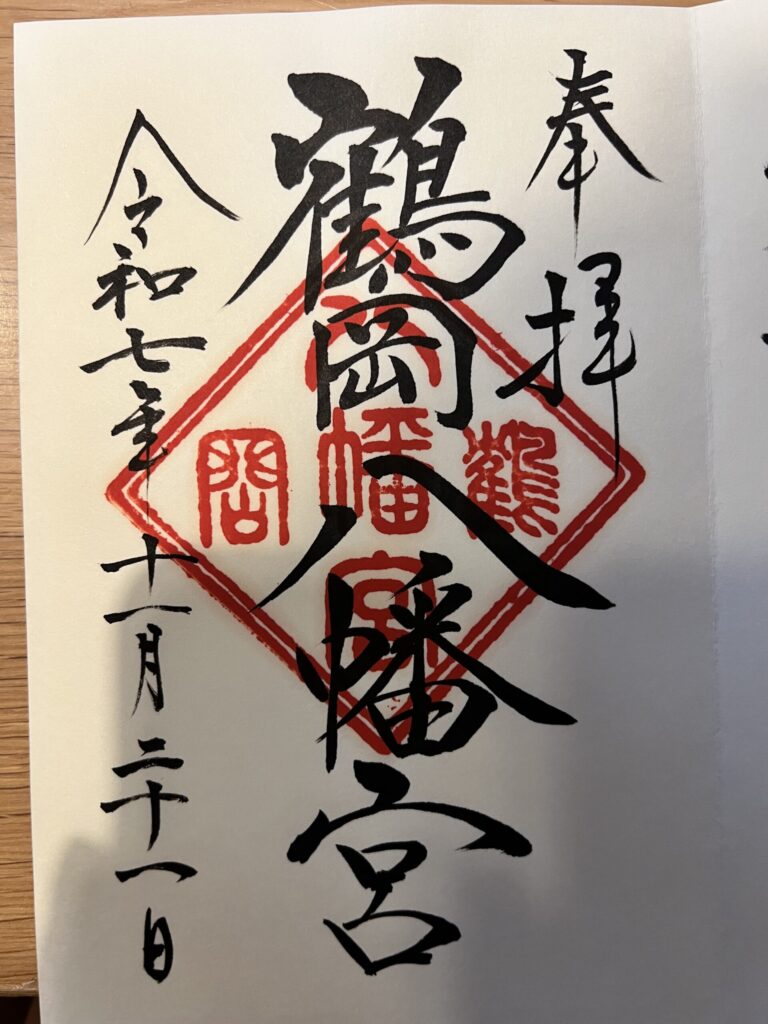 奉拝
鶴岡八幡宮
令和七年十一月二十一日
鶴
八幡宮
岡